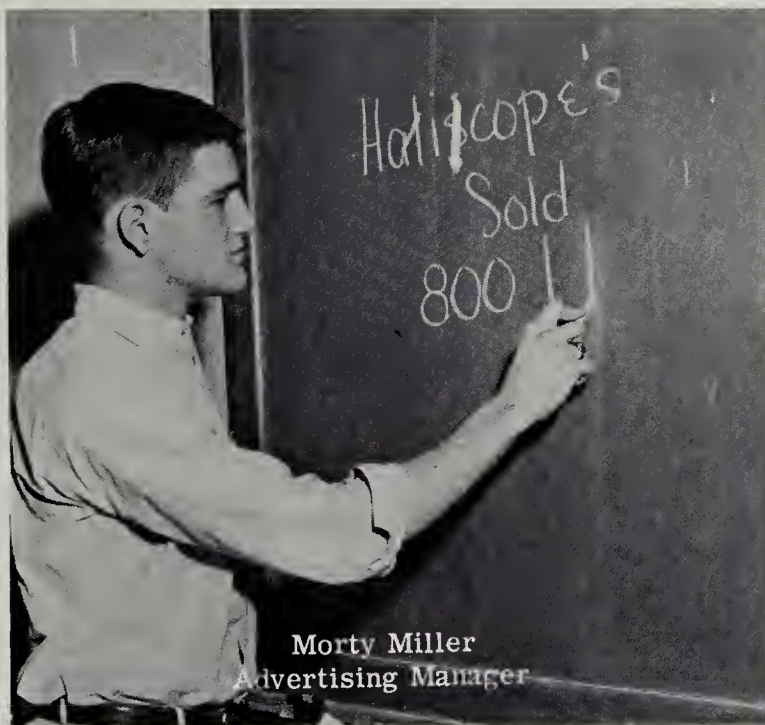 Haliscope's
Sold
800
Morty Miller
Advertising Manager